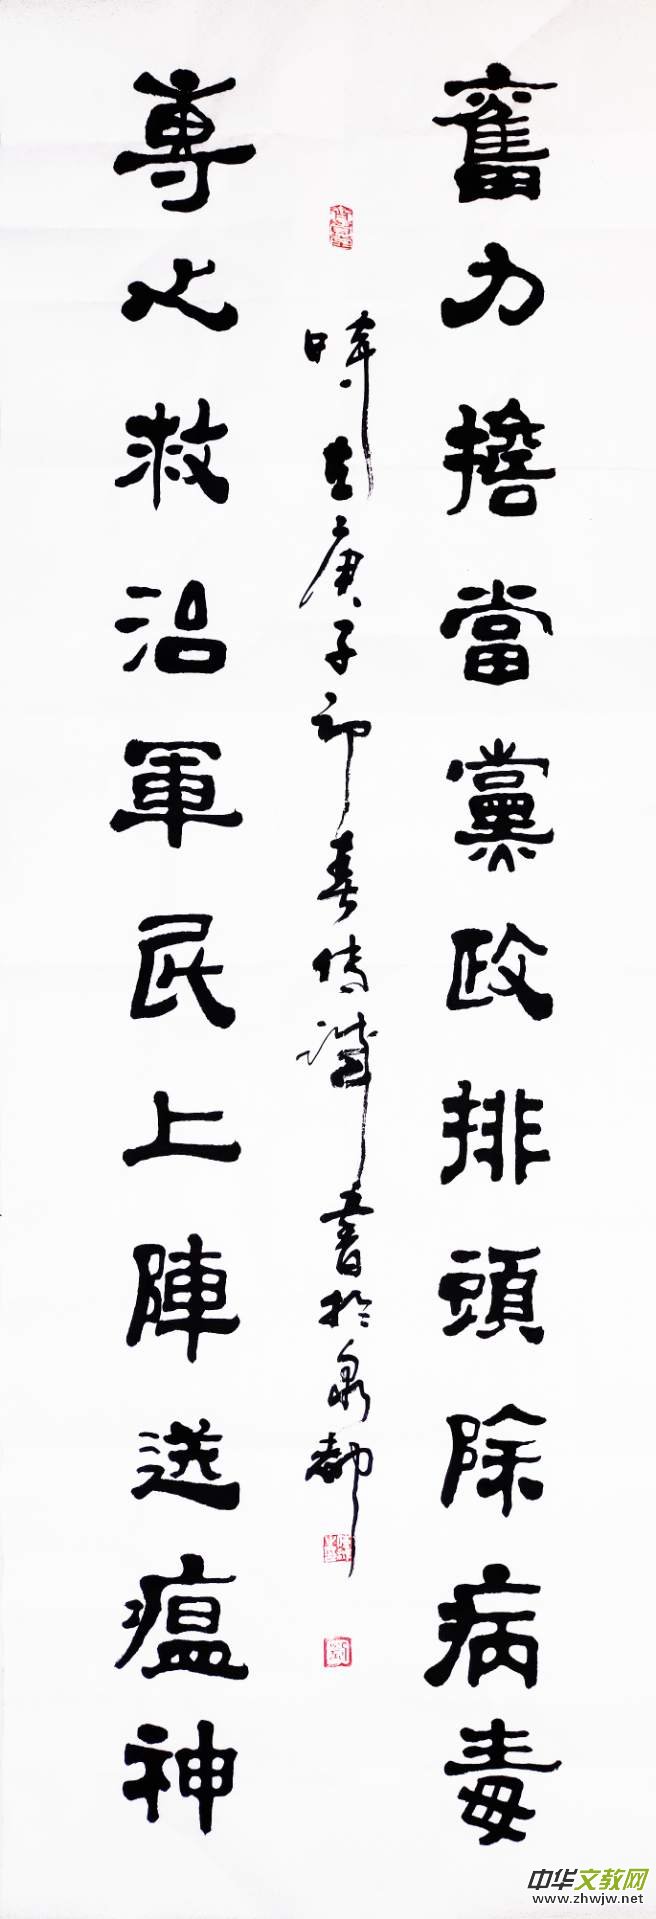 奮力擔當黨政排頭除病毒
專心救治軍民上陣送瘟神
時在庚子初春傳書於泉都
中华文教网
www.zhwjw.net